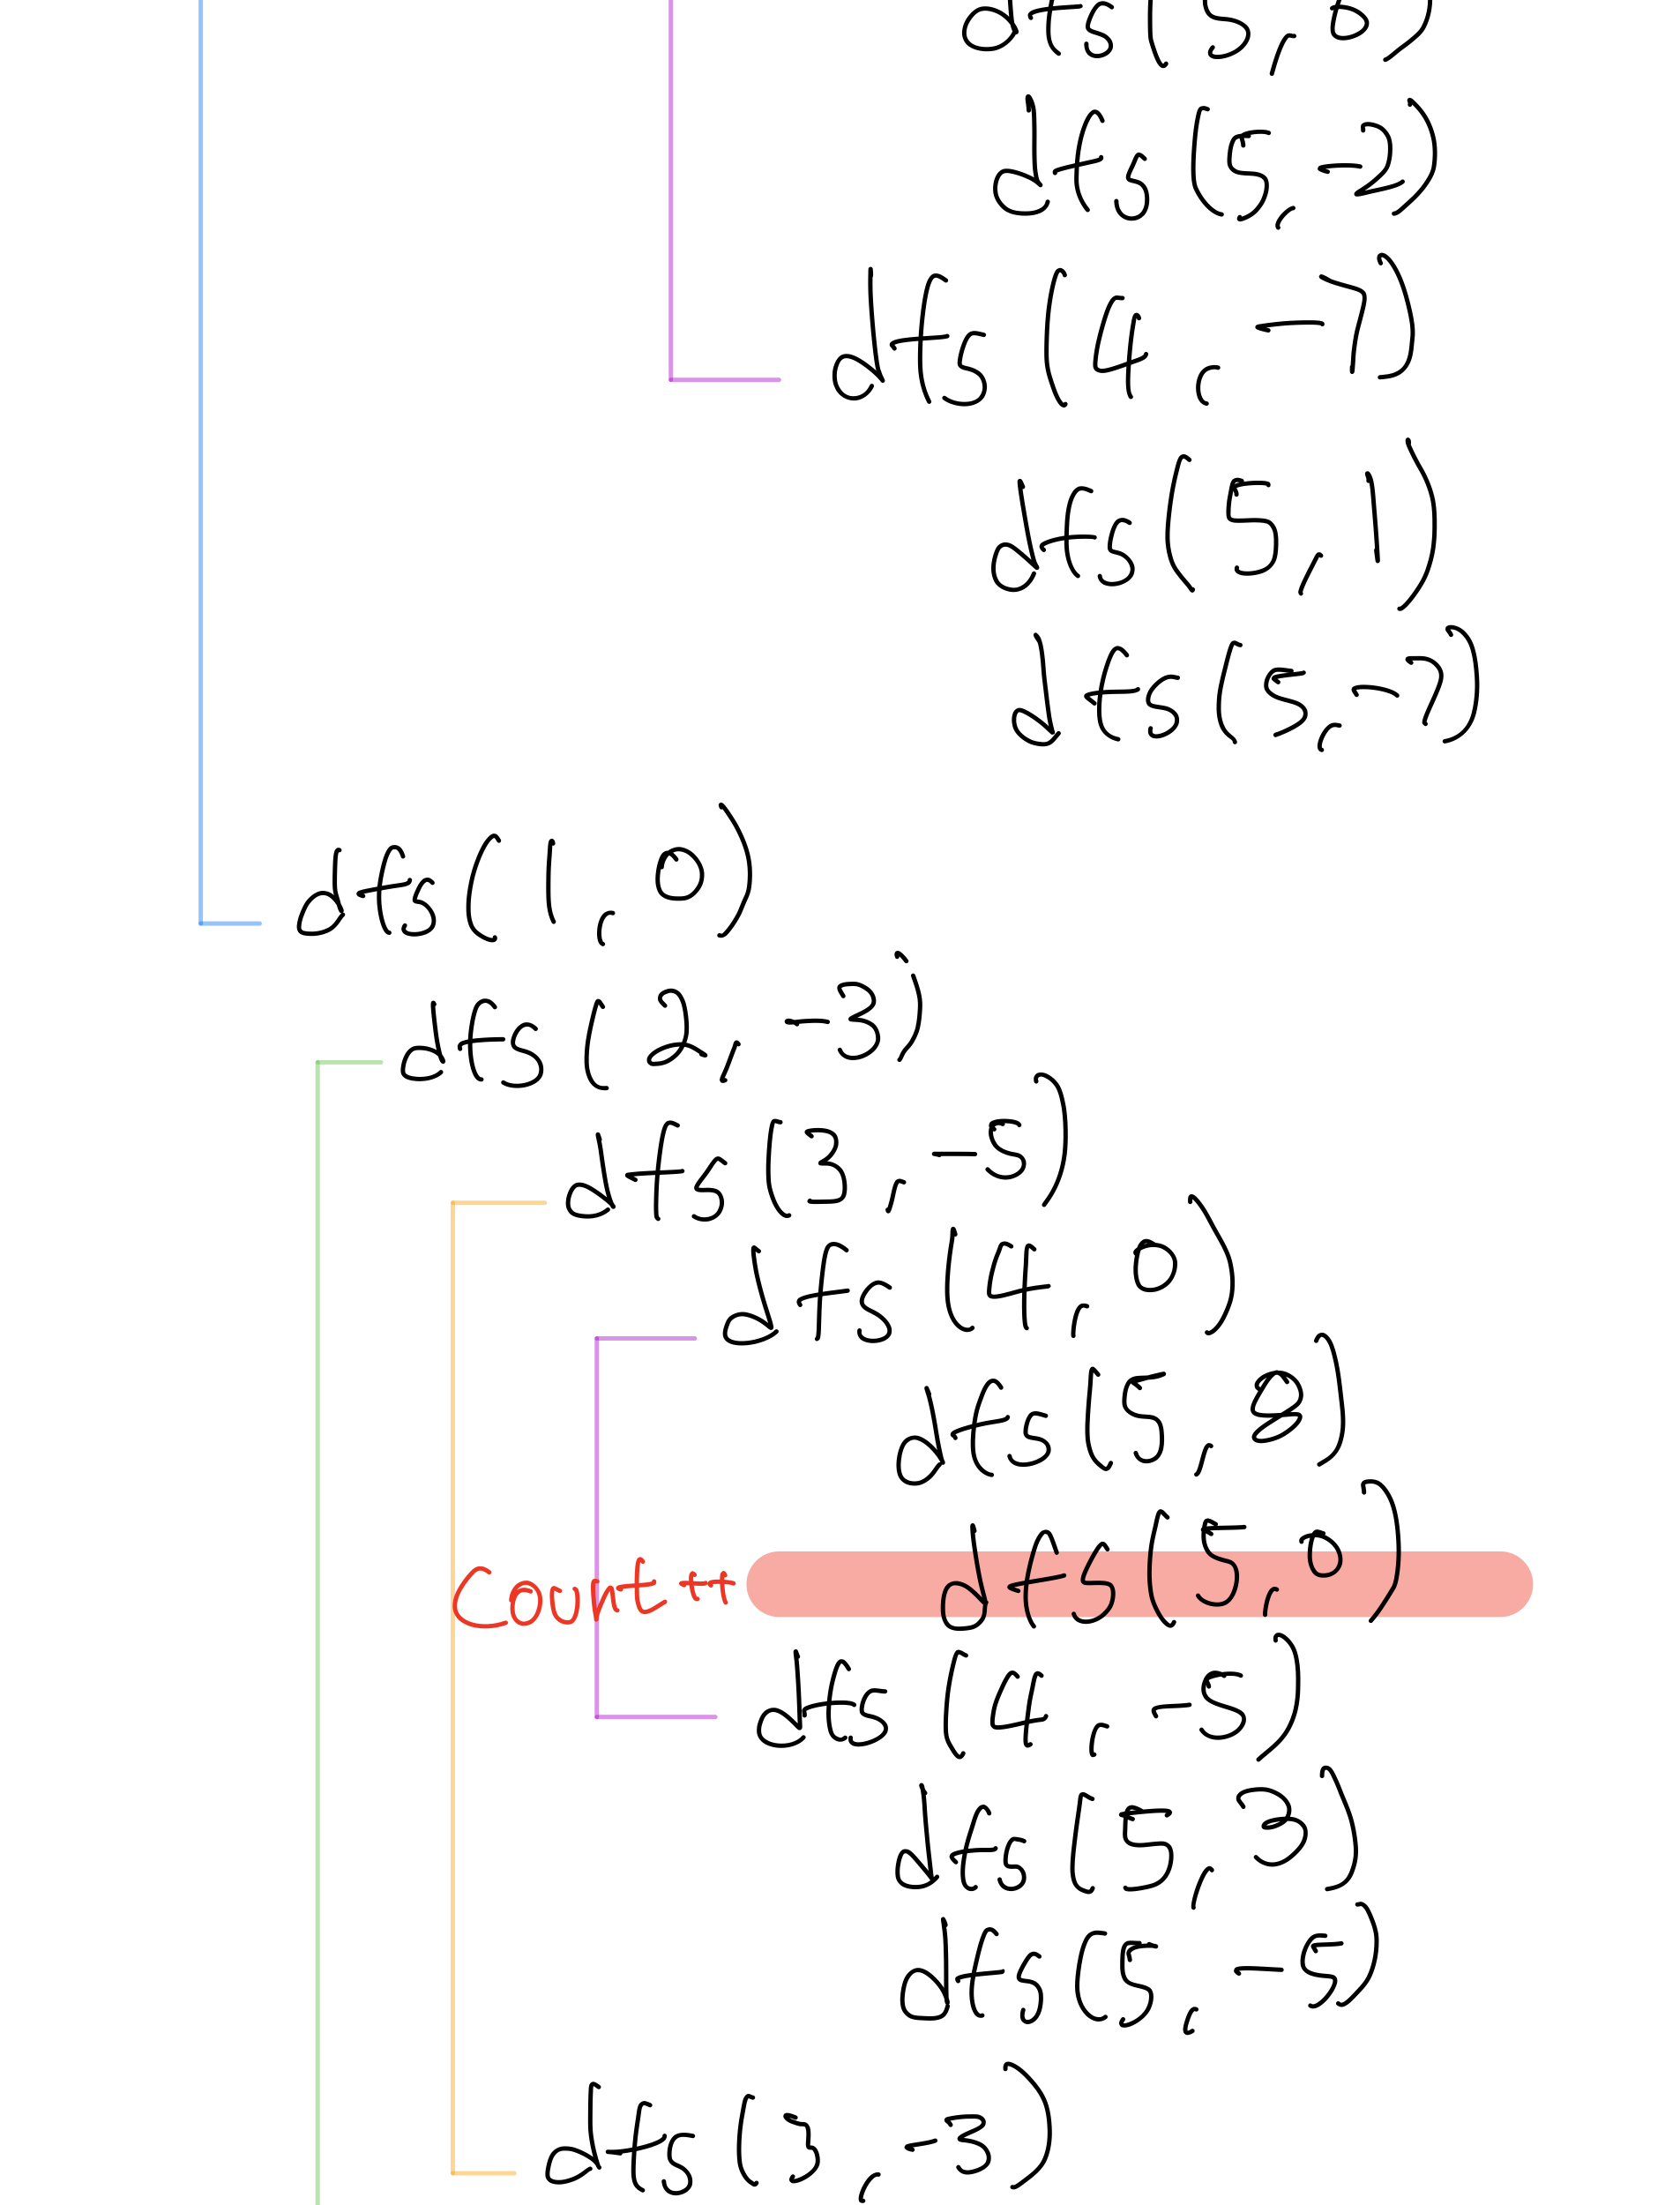 dfs(5, 6)
dfs(5, -2)
dfs(4, -7)
dfs(5, 1)
dfs(5, -7)
dfs(1, 0)
dfs(2, -3)
dfs(3, -5)
dfs(4, 0)
dfs(5, 8)
count++ dfs(5, 0)
dfs(4, -5)
dfs(5, 3)
dfs(5, -5)
dfs(3, -3)